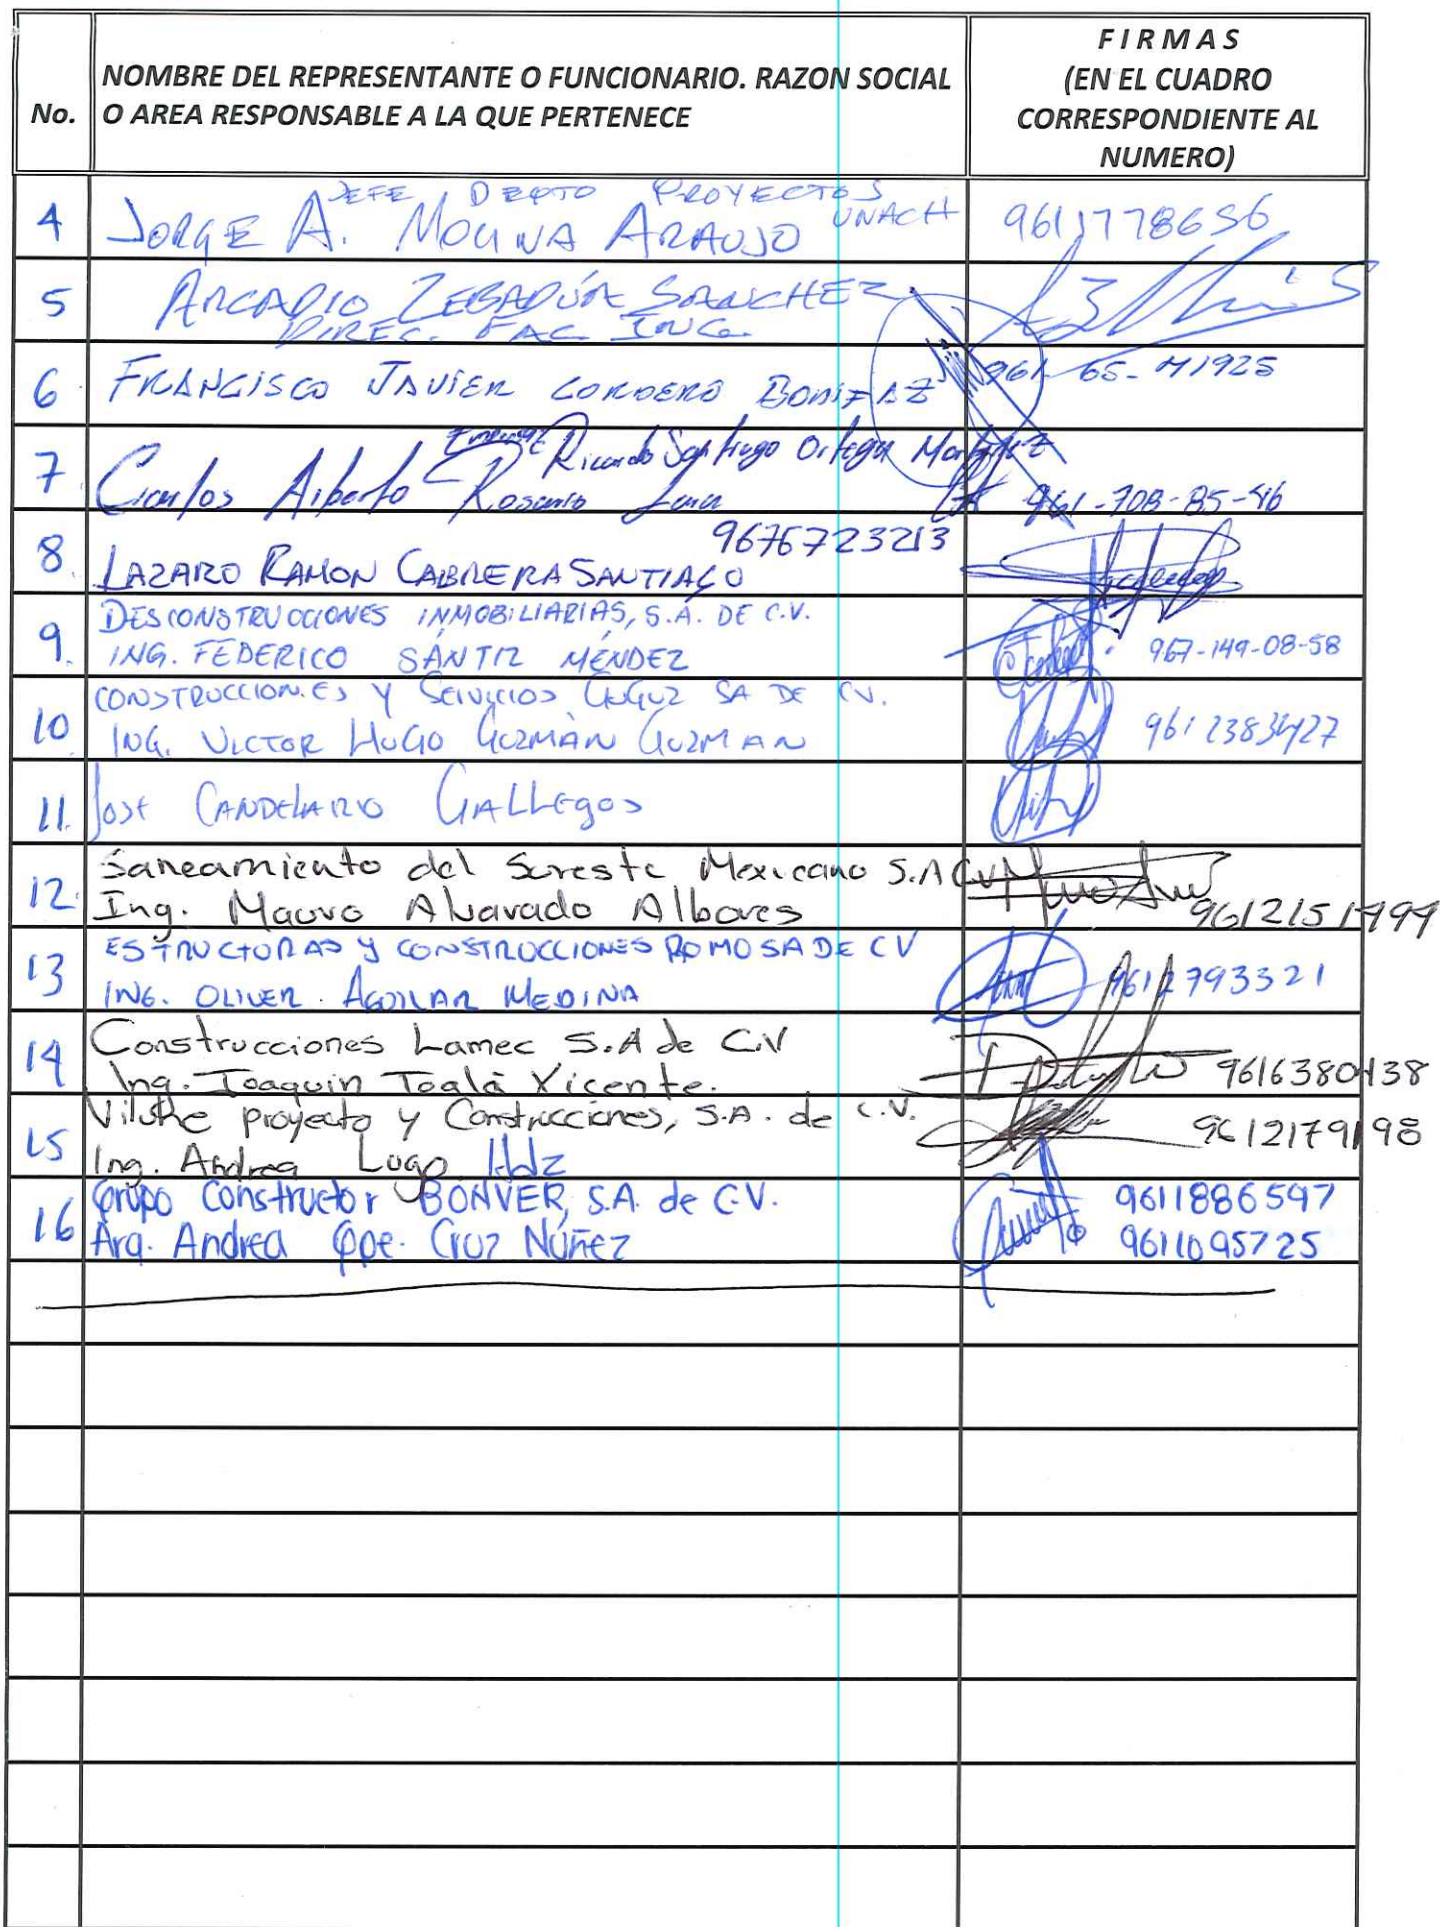 No.
NOMBRE DEL REPRESENTANTE O FUNCIONARIO. RAZON SOCIAL
O AREA RESPONSABLE A LA QUE PERTENECE
FIRMAS
(EN EL CUADRO
CORRESPONDIENTE AL
NUMERO)
4
JEFE DEPTO PROYECTOS
UNACH
JORGE A. MOLINA ARAUJO
9611778656
5
ARCADIO ZEBADÚA SANCHEZ
DIREC. FAC. ING.
6
FRANCISCO JAVIER CORDERO BONIFAZ
961-65-
7
Ricardo Santiago Ortega Martinez
Carlos Alberto Rosario Lara
961-708-85-46
8.
9676723213
LAZARO RAMON CABRERA SANTIAGO
9.
DESCONSTRUCCIONES INMOBILIARIAS, S.A. DE C.V.
ING. FEDERICO SÁNTIZ MÉNDEZ
967-149-08-58
10
CONSTRUCCIONES Y SERVICIOS GUGUZ SA DE CV.
ING. VICTOR HUGO GUZMÁN GUZMAN
9612383427
11.
JOSE CANDELARIO GALLEGOS
12.
Saneamiento del Sureste Mexicano S.A CV
Ing. Mauro Alvarado Albores
9612151499
13
ESTRUCTURAS Y CONSTRUCCIONES ROMO SA DE CV
ING. OLIVER AGUILAR MEDINA
9612793321
14
Construcciones Lamec S.A de C.V
Ing. Joaquin Toalá Vicente.
9616380438
15
proyecto y Construcciones, S.A. de C.V.
Ing. Andrea Lugo Hdz
9612179198
16
Grupo Constructor BONVER, S.A. de C.V.
Arq. Andrea Gpe. Cruz Núñez
9611886597
9611095725